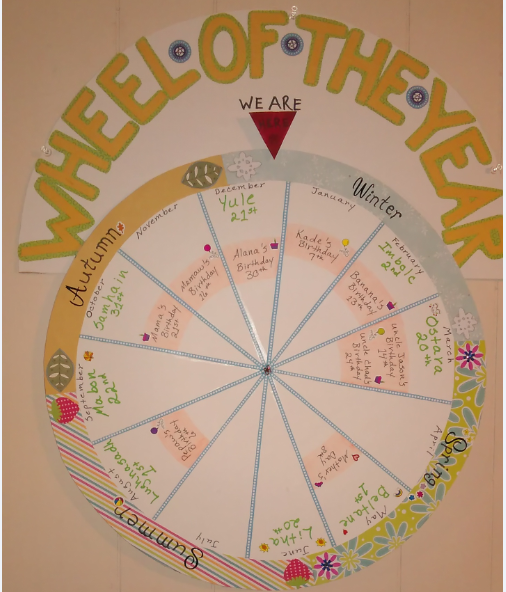 WHEEL OF THE YEAR
WE ARE
HERE
Winter
January
Kade's
Birthday
7th
February
Imbolc
2nd
Banana's
Birthday
March
Ostara
20th
uncle Jason's
Birthday
14th
uncle Chad's
Birthday
24th
Spring
April
May
Beltane
1st
Mother's
Day
June
Litha
20th
Summer
July
August
Lughnasadh
1st
Birthday
September
Mabon
22nd
Autumn
October
Samhain
31st
Mama's
Birthday
21st
November
Birthday
December
Yule
21st
Alana's
Birthday
30th